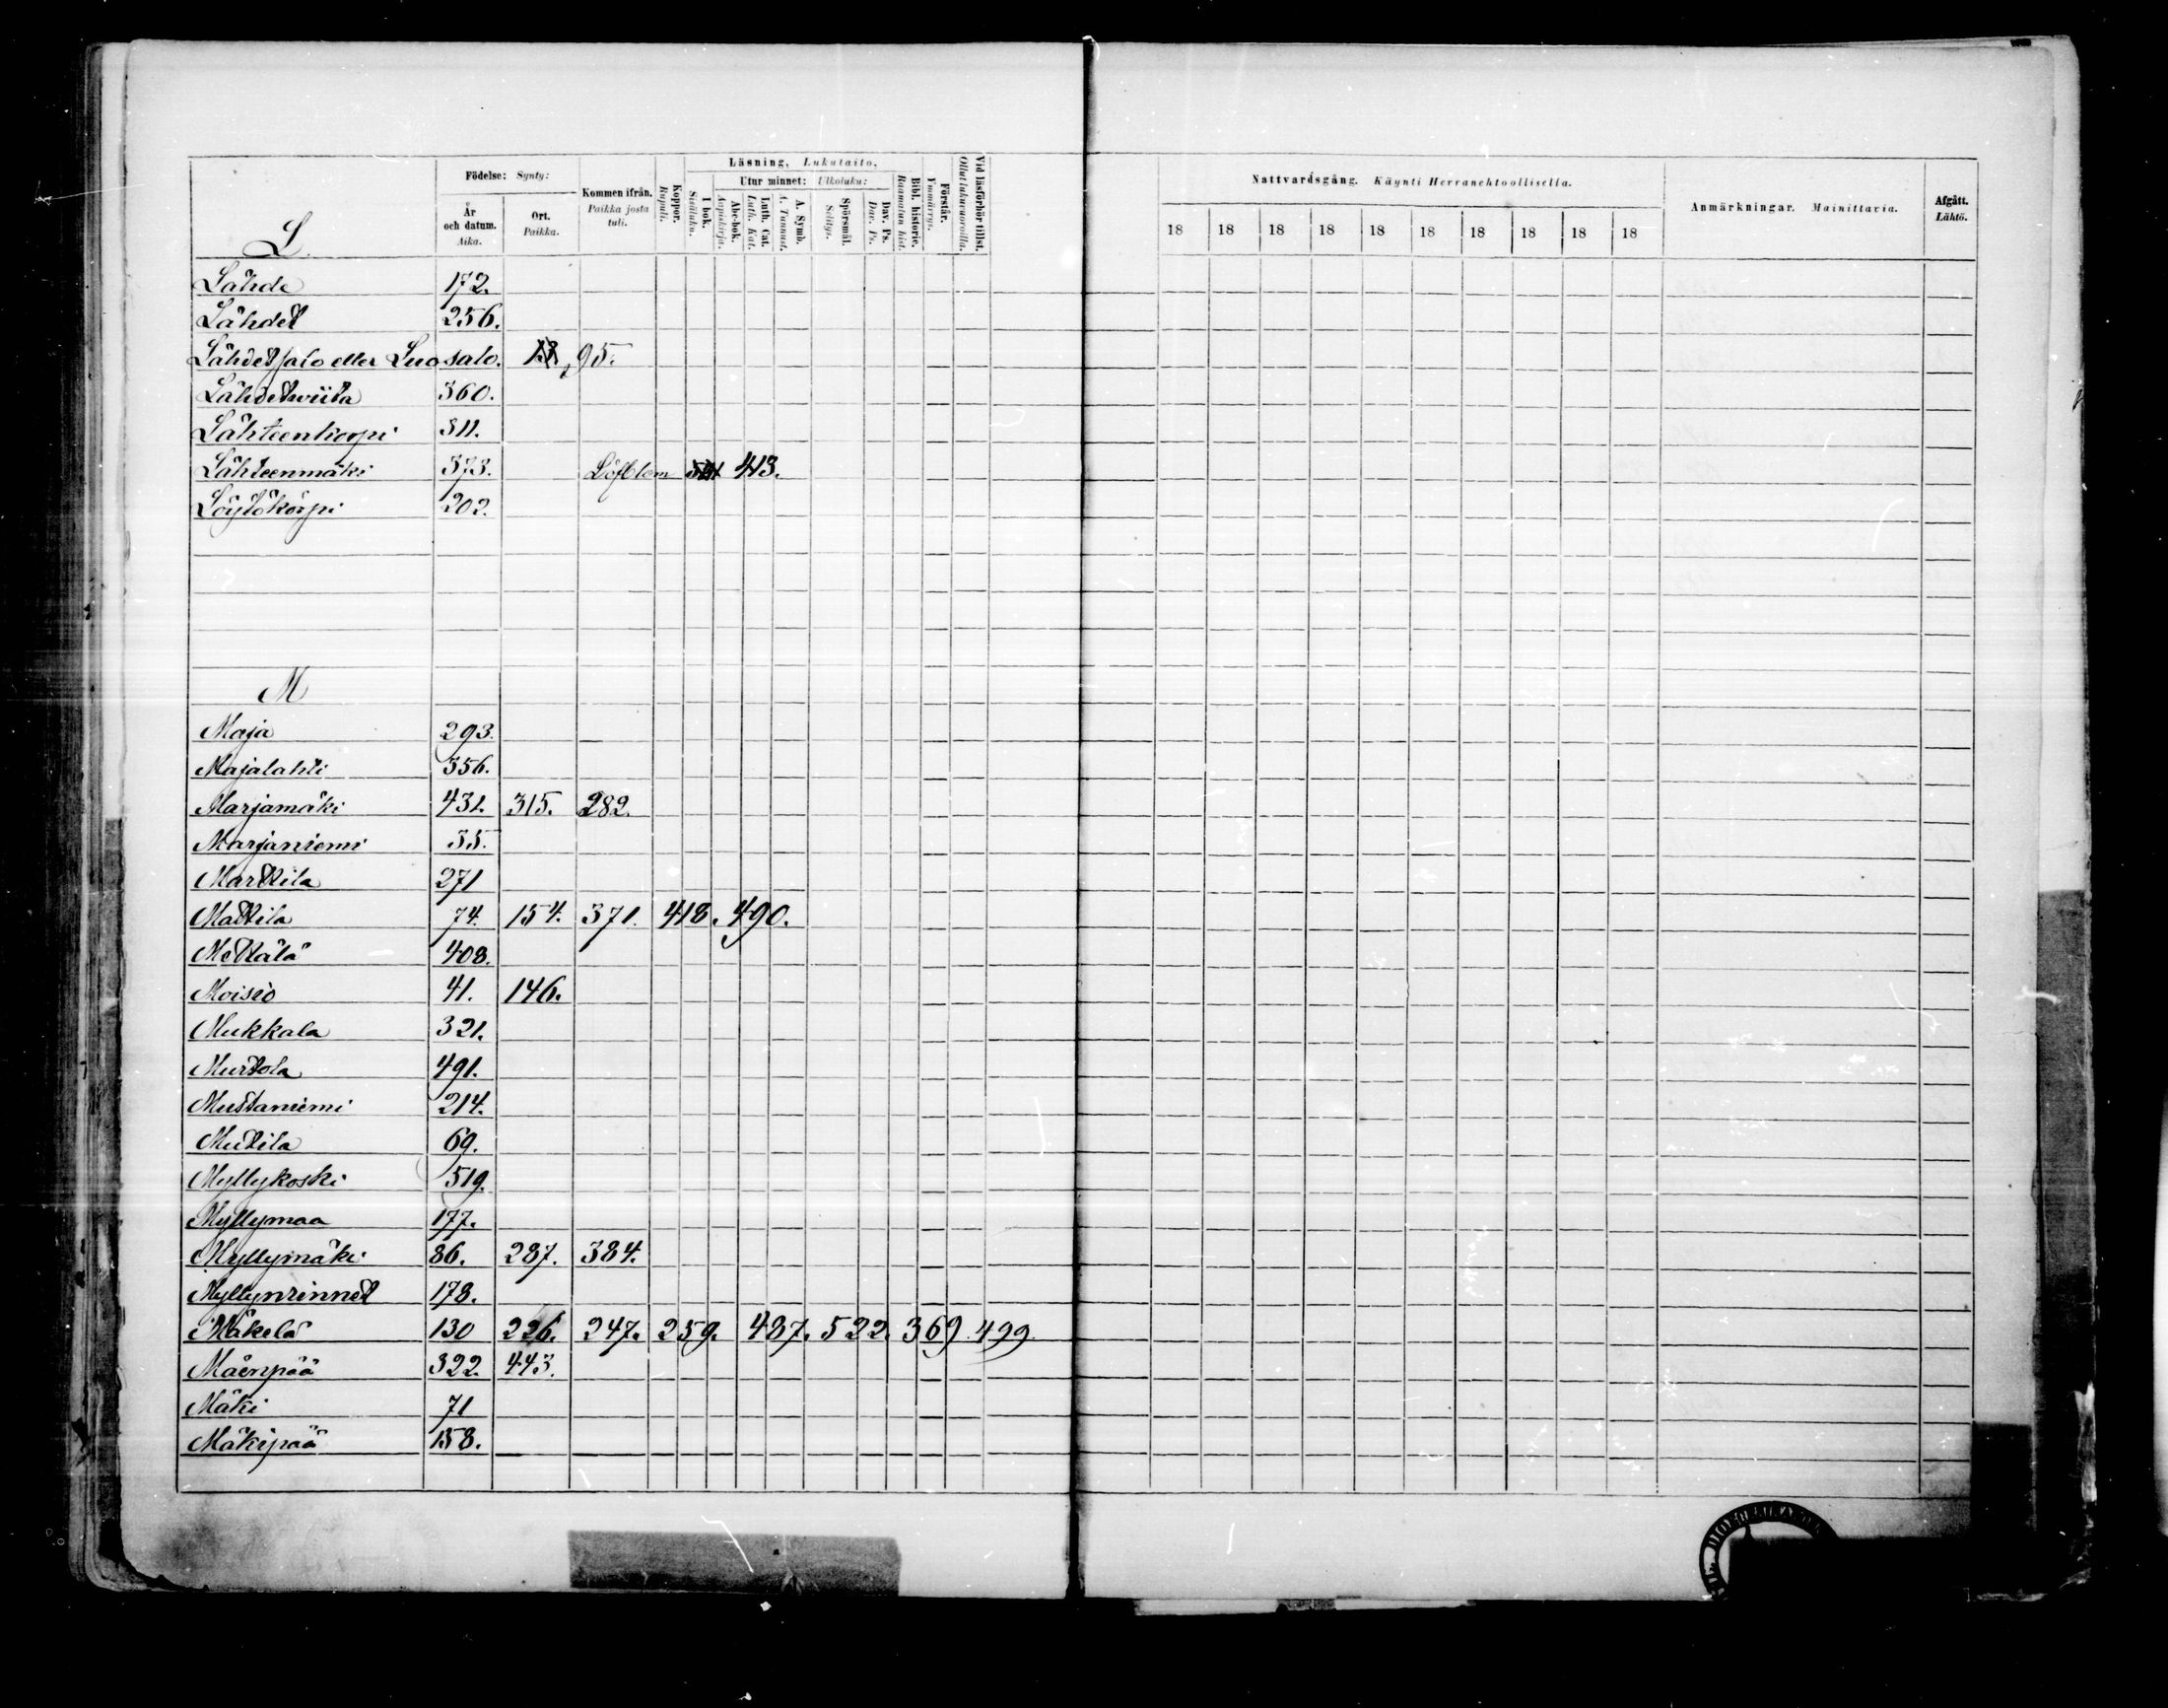 Födelse: Synty:
År och datum. Aika.
Ort. Paikka.
Kommen ifrån. Paikka josta tuli.
Koppor. Rupuli.
Läsning, Lukutaito,
I bok. Sisäluku.
Utur minnet: Ulkoluku:
Abc-bok. Aapiskirja.
Luth. Cat. Luth. Kat.
A. Symb. A. Tunnust.
Spörsmål. Selitys.
Dav. Ps. Dav. Ps.
Bibl. historie. Raamatun hist.
Förstår. Ymmärrys.
Vid läsförhör tillst. Ollut lukuvuoroilla.
Nattvardsgång. Käynti Herranehtoollisella.
18 18 18 18 18 18 18 18 18 18
Anmärkningar. Mainittavia.
Afgått. Lähtö.
L
Lähde 172.
Lähdet 256.
Lähdetsalo eller Luosalo. 95.
Lähdetwiita 360.
Lähteenkorpi 311.
Lähteenmäki 373. Löfblom 413.
Löytökorpi 202.
M
Maja 293.
Majalahti 356.
Marjamäki 431. 315. 282.
Marjaniemi 35.
Marttila 271
Mattila 74. 154. 371. 418. 490.
Mettälä 408.
Moisio 41. 146.
Mukkala 321.
Murtola 491.
Mustaniemi 214.
Mutila 69.
Myllykoski 519.
Myllymaa 177.
Myllymäki 86. 287. 384.
Myllynrinnet 178.
Mäkelä 130 226. 247. 259. 487. 522. 369 499.
Mäenpää 322. 443.
Mäki 71
Mäkipää 158.